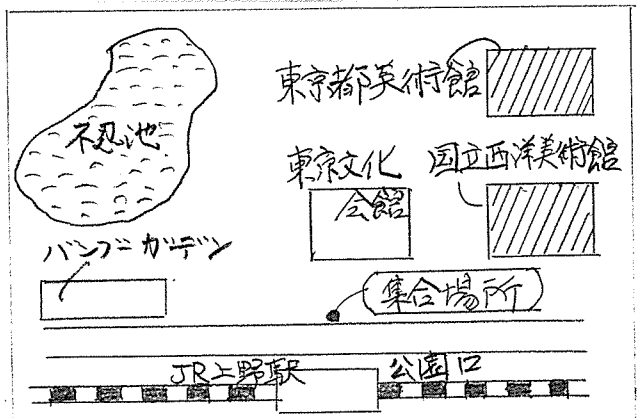 東京都美術館
不忍池
東京文化
会館
国立西洋美術館
バンブーガーデン
集合場所
JR上野駅
公園口